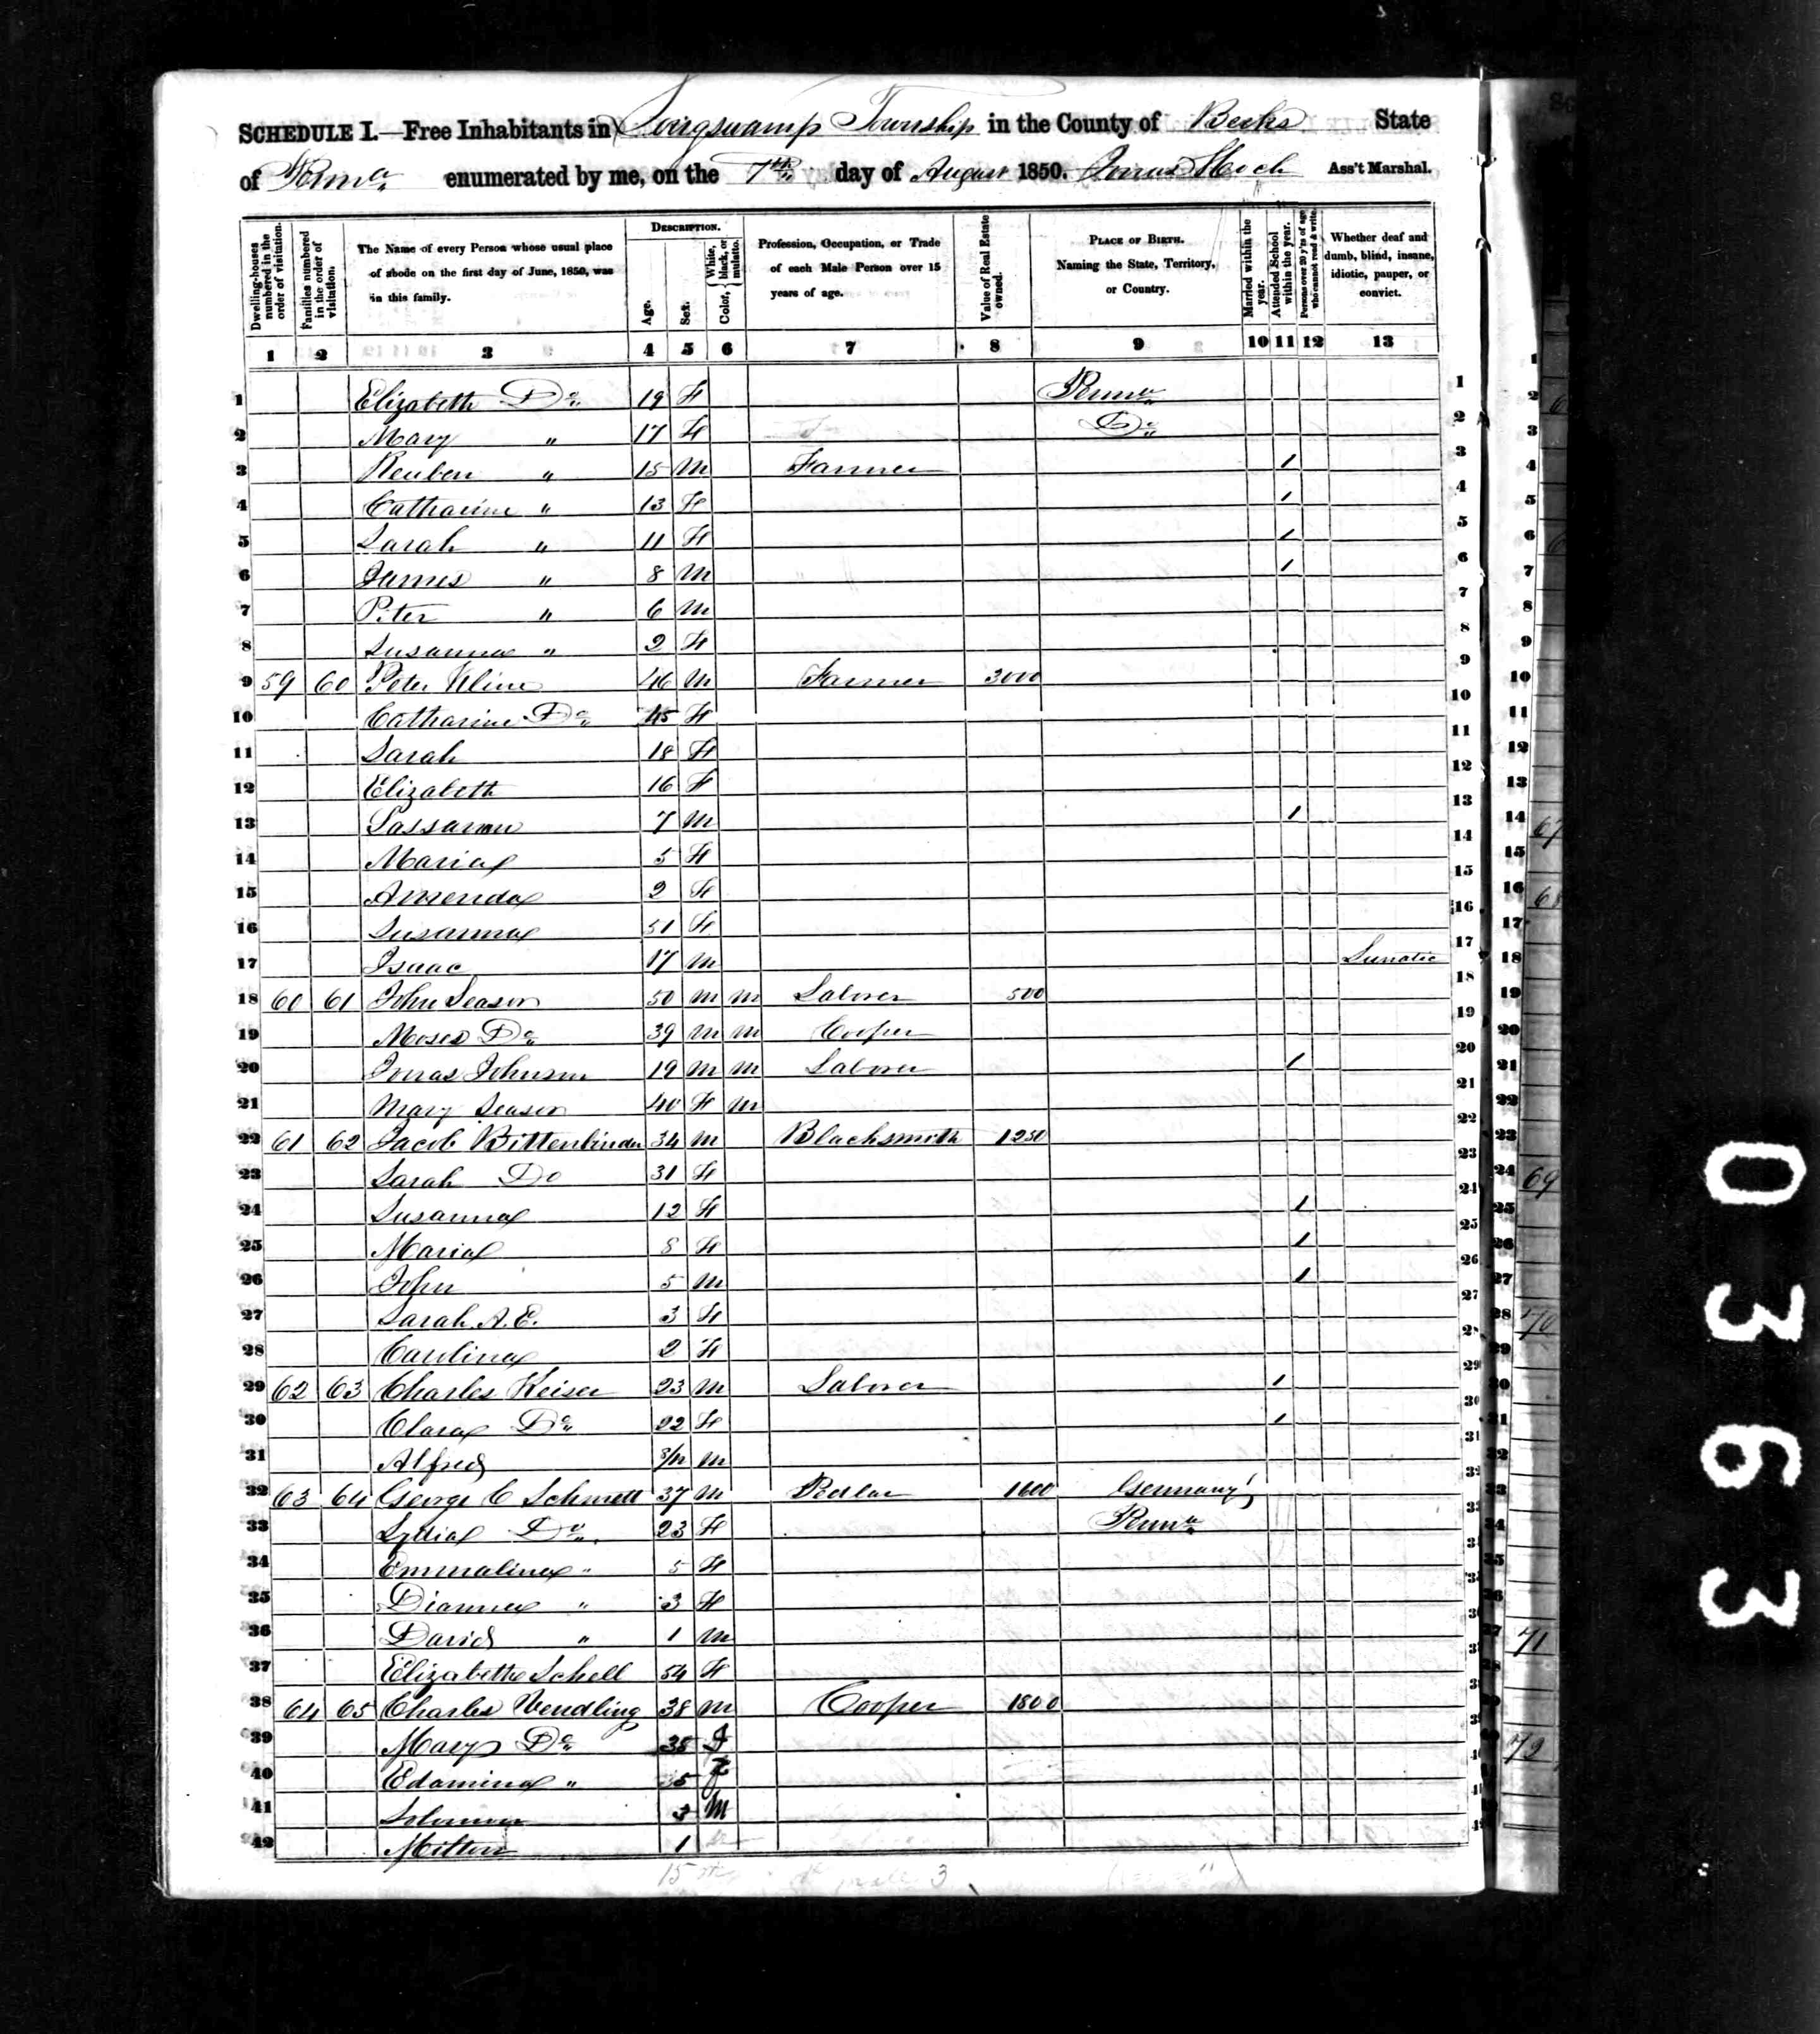 SCHEDULE I.—Free Inhabitants in Longswamp Township in the County of Berks State
of Penna enumerated by me, on the 7th day of August 1850. Jonas Hoch Ass't Marshal.
Dwelling-houses numbered in the order of visitation.
Families numbered in the order of visitation.
The Name of every Person whose usual place of abode on the first day of June, 1850, was in this family.
DESCRIPTION.
Age.
Sex.
Color, { White, black, or mulatto.
Profession, Occupation, or Trade of each Male Person over 15 years of age.
Value of Real Estate owned.
PLACE OF BIRTH. Naming the State, Territory, or Country.
Married within the year.
Attended School within the year.
Persons over 20 y'rs of age who cannot read & write.
Whether deaf and dumb, blind, insane, idiotic, pauper, or convict.
1 2 3 4 5 6 7 8 9 10 11 12 13
1 Elizabeth Do 19 F Penna 1
2 Mary " 17 F Do 2
3 Reuben " 15 M Farmer 1 3
4 Catharine " 13 F 1 4
5 Sarah " 11 F 1 5
6 James " 8 M 1 6
7 Peter " 6 M 7
8 Susanna " 2 F 8
9 59 60 Peter Kline 46 M Farmer 3000 9
10 Catharine Do 45 F 10
11 Sarah 18 F 11
12 Elizabeth 16 F 12
13 7 M 1 13
14 Maria 5 F 14
15 Amenda 2 F 15
16 Susanna 51 F 16
17 Isaac 17 M Lunatic 17
18 60 61 John Season 50 M M Laborer 500 18
19 Moses Do 39 M M Cooper 19
20 Jonas Johnson 19 M M Laborer 1 20
21 Mary Season 40 F M 21
22 61 62 Jacob Bittenbinder 34 M Blacksmith 1250 22
23 Sarah Do 31 F 23
24 Susanna 12 F 1 24
25 Maria 8 F 1 25
26 John 5 M 1 26
27 Sarah A. E. 3 F 27
28 Carolina 2 F 28
29 62 63 Charles Keiser 23 M Laborer 1 29
30 Clara Do 22 F 1 30
31 Alfred 8/12 M 31
32 63 64 George C Schmett 37 M Pedlar 1600 Germany
33 Lydia Do 23 F Penna
34 Emmalina " 5 F
35 Dianna " 3 F
36 David " 1 M
37 Elizabeth Schell 54 F
38 64 65 Charles Wendling 38 M Cooper 1800
39 Mary Do 38 F
40 Edamina " 5 F
41 Solomon 3 M
42 Milton 1
0363